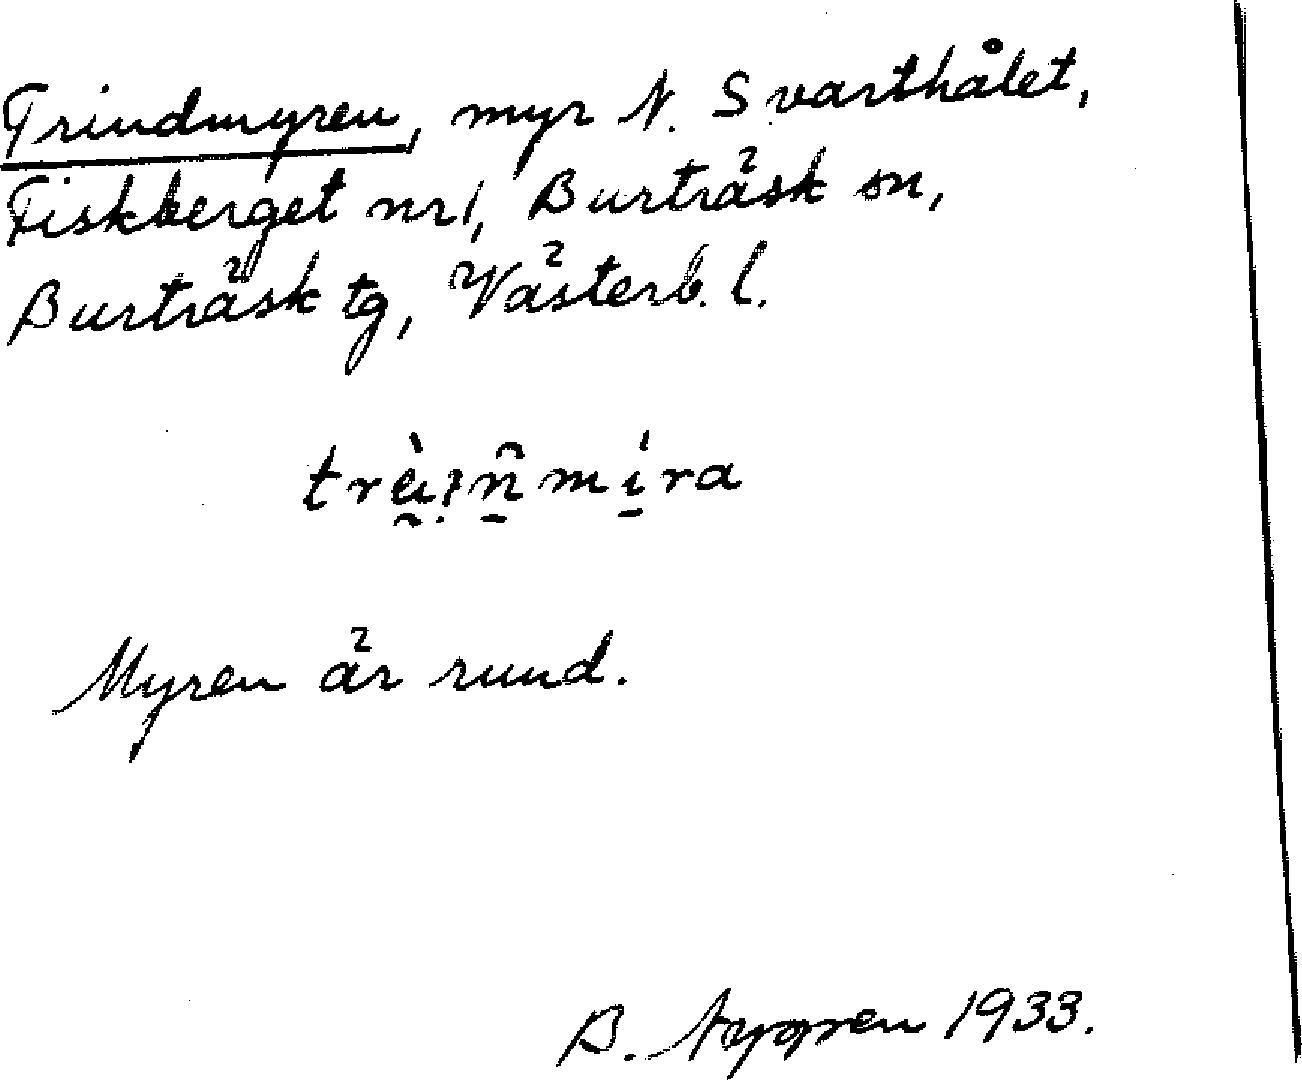 Trindmyren, myr N. Svarthålet,
Fiskberget nr 1, Burträsk sn,
Burträsk tg, Västerb. l.
Myren är rund.
B. Nygren 1933.